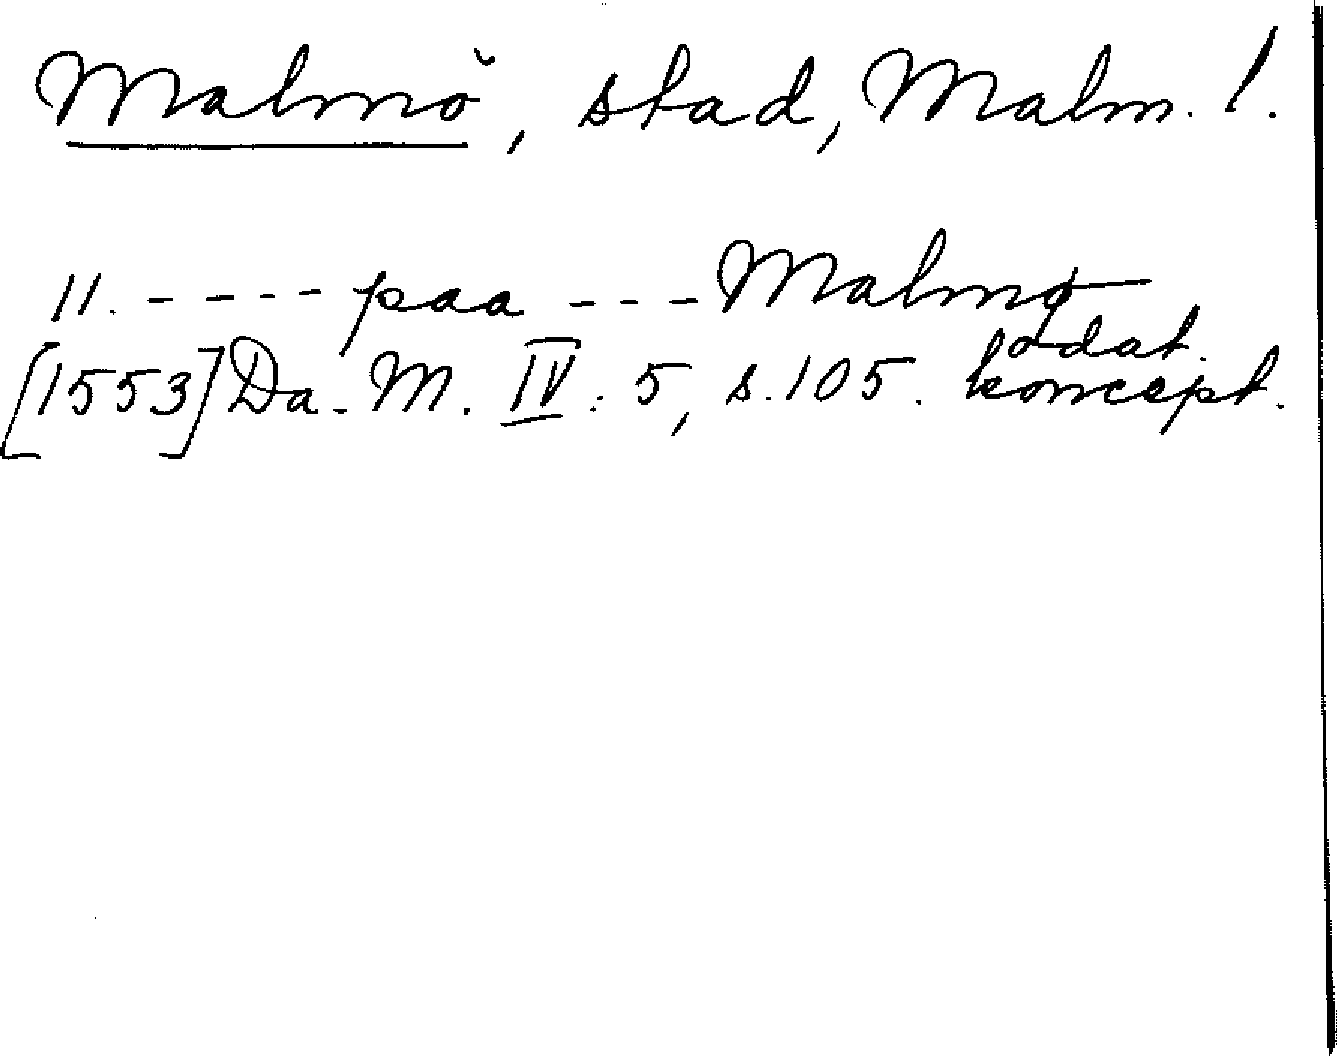 Malmö, stad, Malm. l.
11. - - - - paa - - - Malmø
odat.
[1553] Da. M. IV: 5, s. 105. koncept.